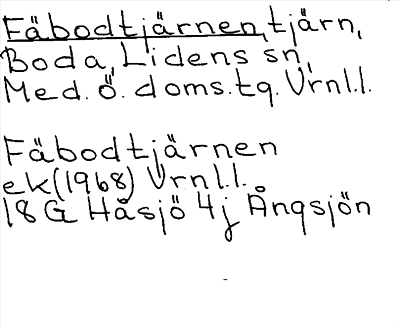 Fäbodtjärnen, tjärn,
Boda, Lidens sn,
Med. Ö. doms.tg. Vrnl.l.
Fäbodtjärnen
ek(1968) Vrnl.l.
18G Håsjö 4j Ångsjön